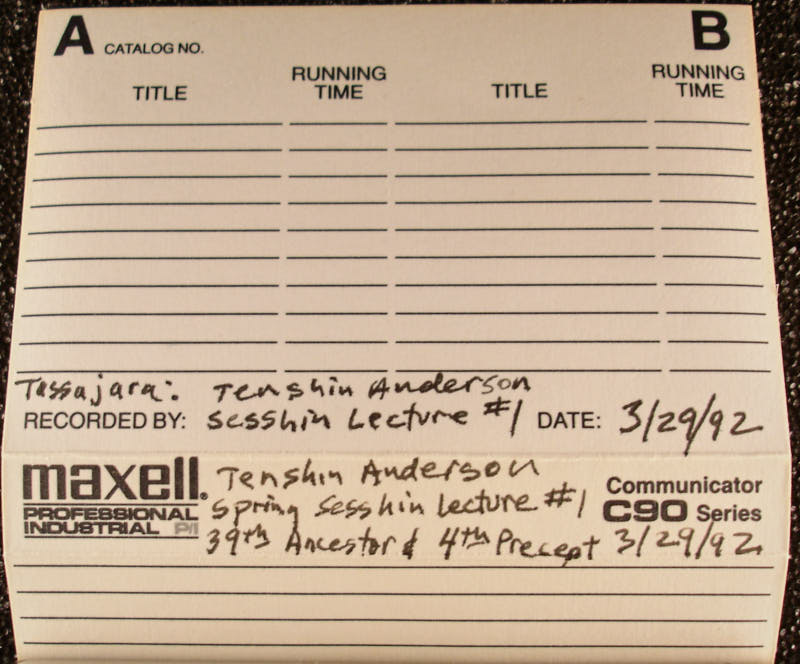 A CATALOG NO. B
TITLE RUNNING TIME TITLE RUNNING TIME
Tassajara: Tenshin Anderson
RECORDED BY: Sesshin Lecture #1 DATE: 3/29/92
maxell. Tenshin Anderson
PROFESSIONAL INDUSTRIAL P/I Spring Sesshin Lecture #1 Communicator C90 Series
39th Ancestor & 4th Precept 3/29/92